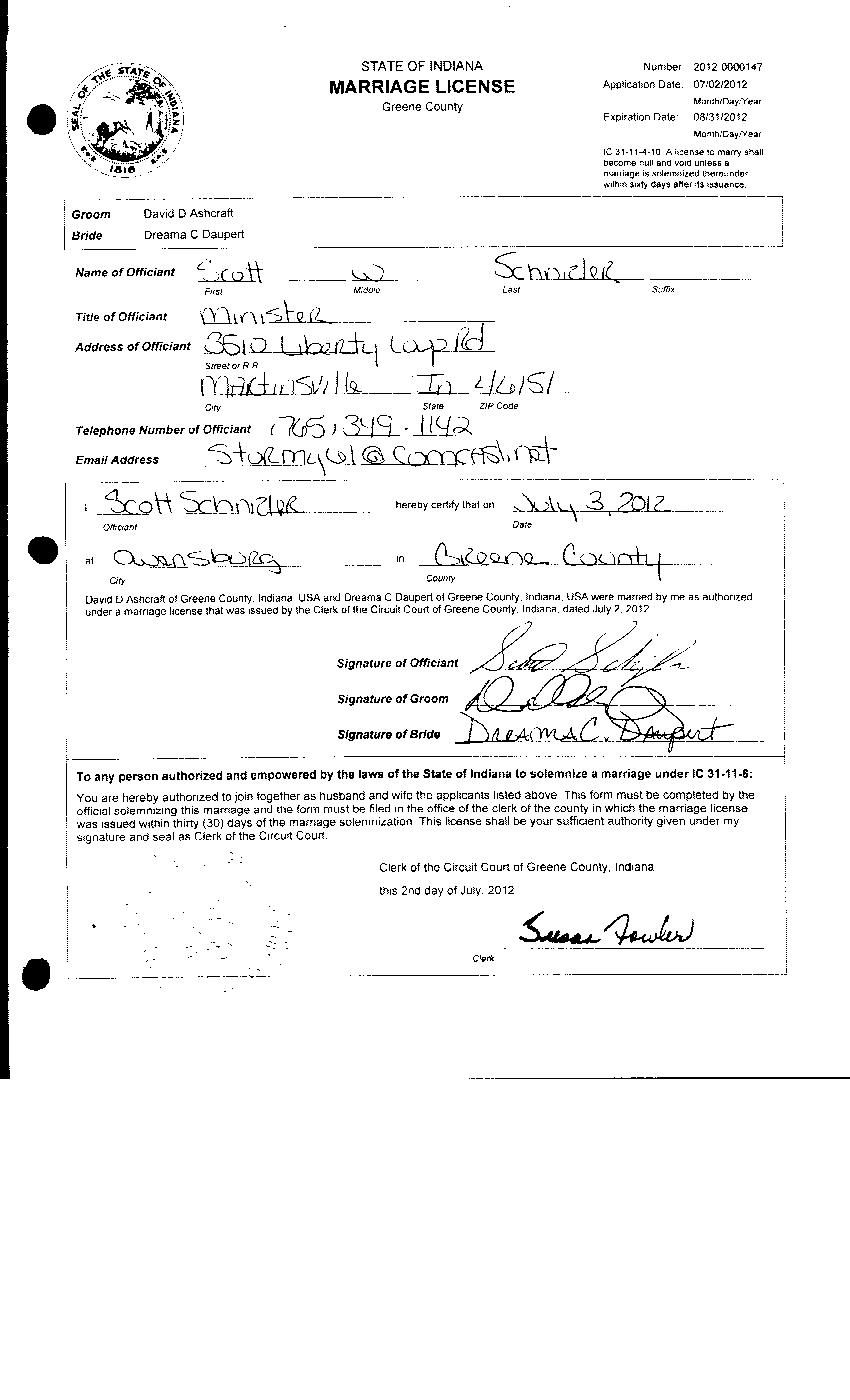 STATE OF INDIANA
MARRIAGE LICENSE
Greene County
Number 2012 0000147
Application Date: 07/02/2012
Month/Day/Year
Expiration Date: 08/31/2012
Month/Day/Year
IC 31-11-4-10 A license to marry shall
become null and void unless a
marriage is solemnized thereunder
within sixty days after its issuance.
SEAL OF THE STATE OF INDIANA
1816
Groom David D Ashcraft
Bride Dreama C Daupert
Name of Officiant Scott W Schnizler
First Middle Last Suffix
Title of Officiant Minister
Address of Officiant 3510 Liberty Lap Rd
Street or R R
Martinsville In 46151
City State ZIP Code
Telephone Number of Officiant (765) 349-1142
Email Address
I Scott Schnizler hereby certify that on July 3, 2012
Officiant Date
at Owensburg in Greene County
City County
David D Ashcraft of Greene County, Indiana, USA and Dreama C Daupert of Greene County, Indiana, USA were married by me as authorized
under a marriage license that was issued by the Clerk of the Circuit Court of Greene County, Indiana, dated July 2, 2012
Signature of Officiant
Signature of Groom
Signature of Bride Dreama C. Daupert
To any person authorized and empowered by the laws of the State of Indiana to solemnize a marriage under IC 31-11-6:
You are hereby authorized to join together as husband and wife the applicants listed above. This form must be completed by the
official solemnizing this marriage and the form must be filed in the office of the clerk of the county in which the marriage license
was issued within thirty (30) days of the marriage solemnization. This license shall be your sufficient authority given under my
signature and seal as Clerk of the Circuit Court.
Clerk of the Circuit Court of Greene County, Indiana
this 2nd day of July, 2012
Susan Fowler
Clerk